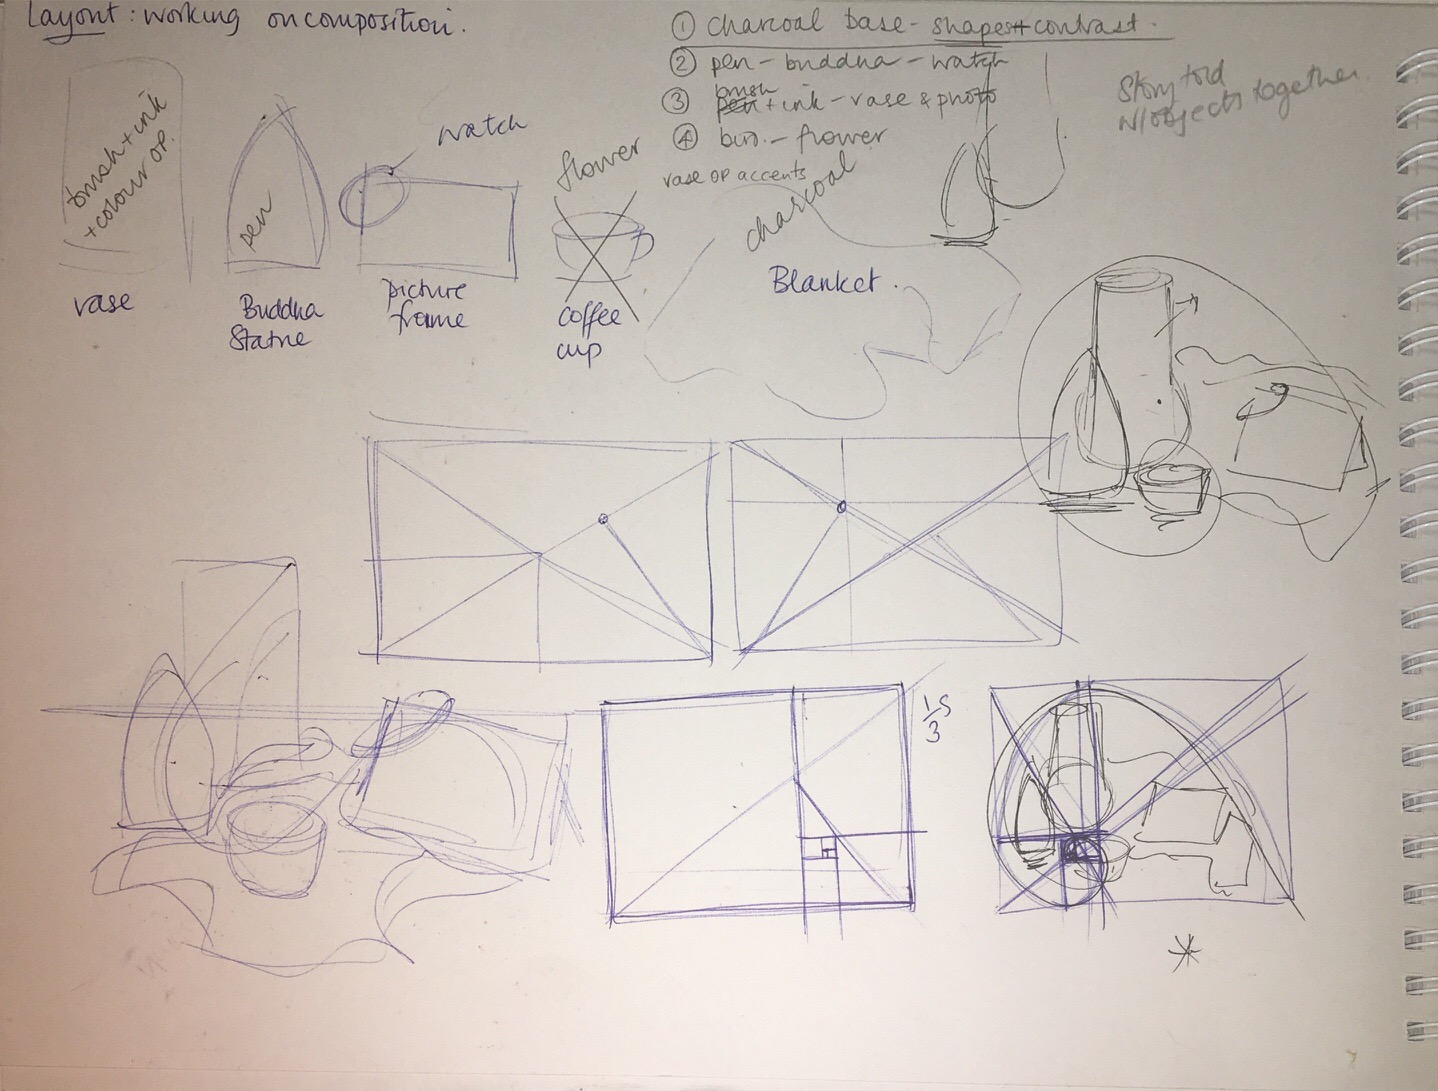 Layout: working on composition.
① charcoal base - shapes + contrast.
② pen - buddha - watch
③ pen brush + ink - vase & photo
④ biro. - flower
vase OP accents
Story told
w/objects together.
brush + ink
+ colour OP.
vase
pen
Buddha
Statue
watch
picture
frame
flower
coffee
cup
charcoal
Blanket.
1/3 s